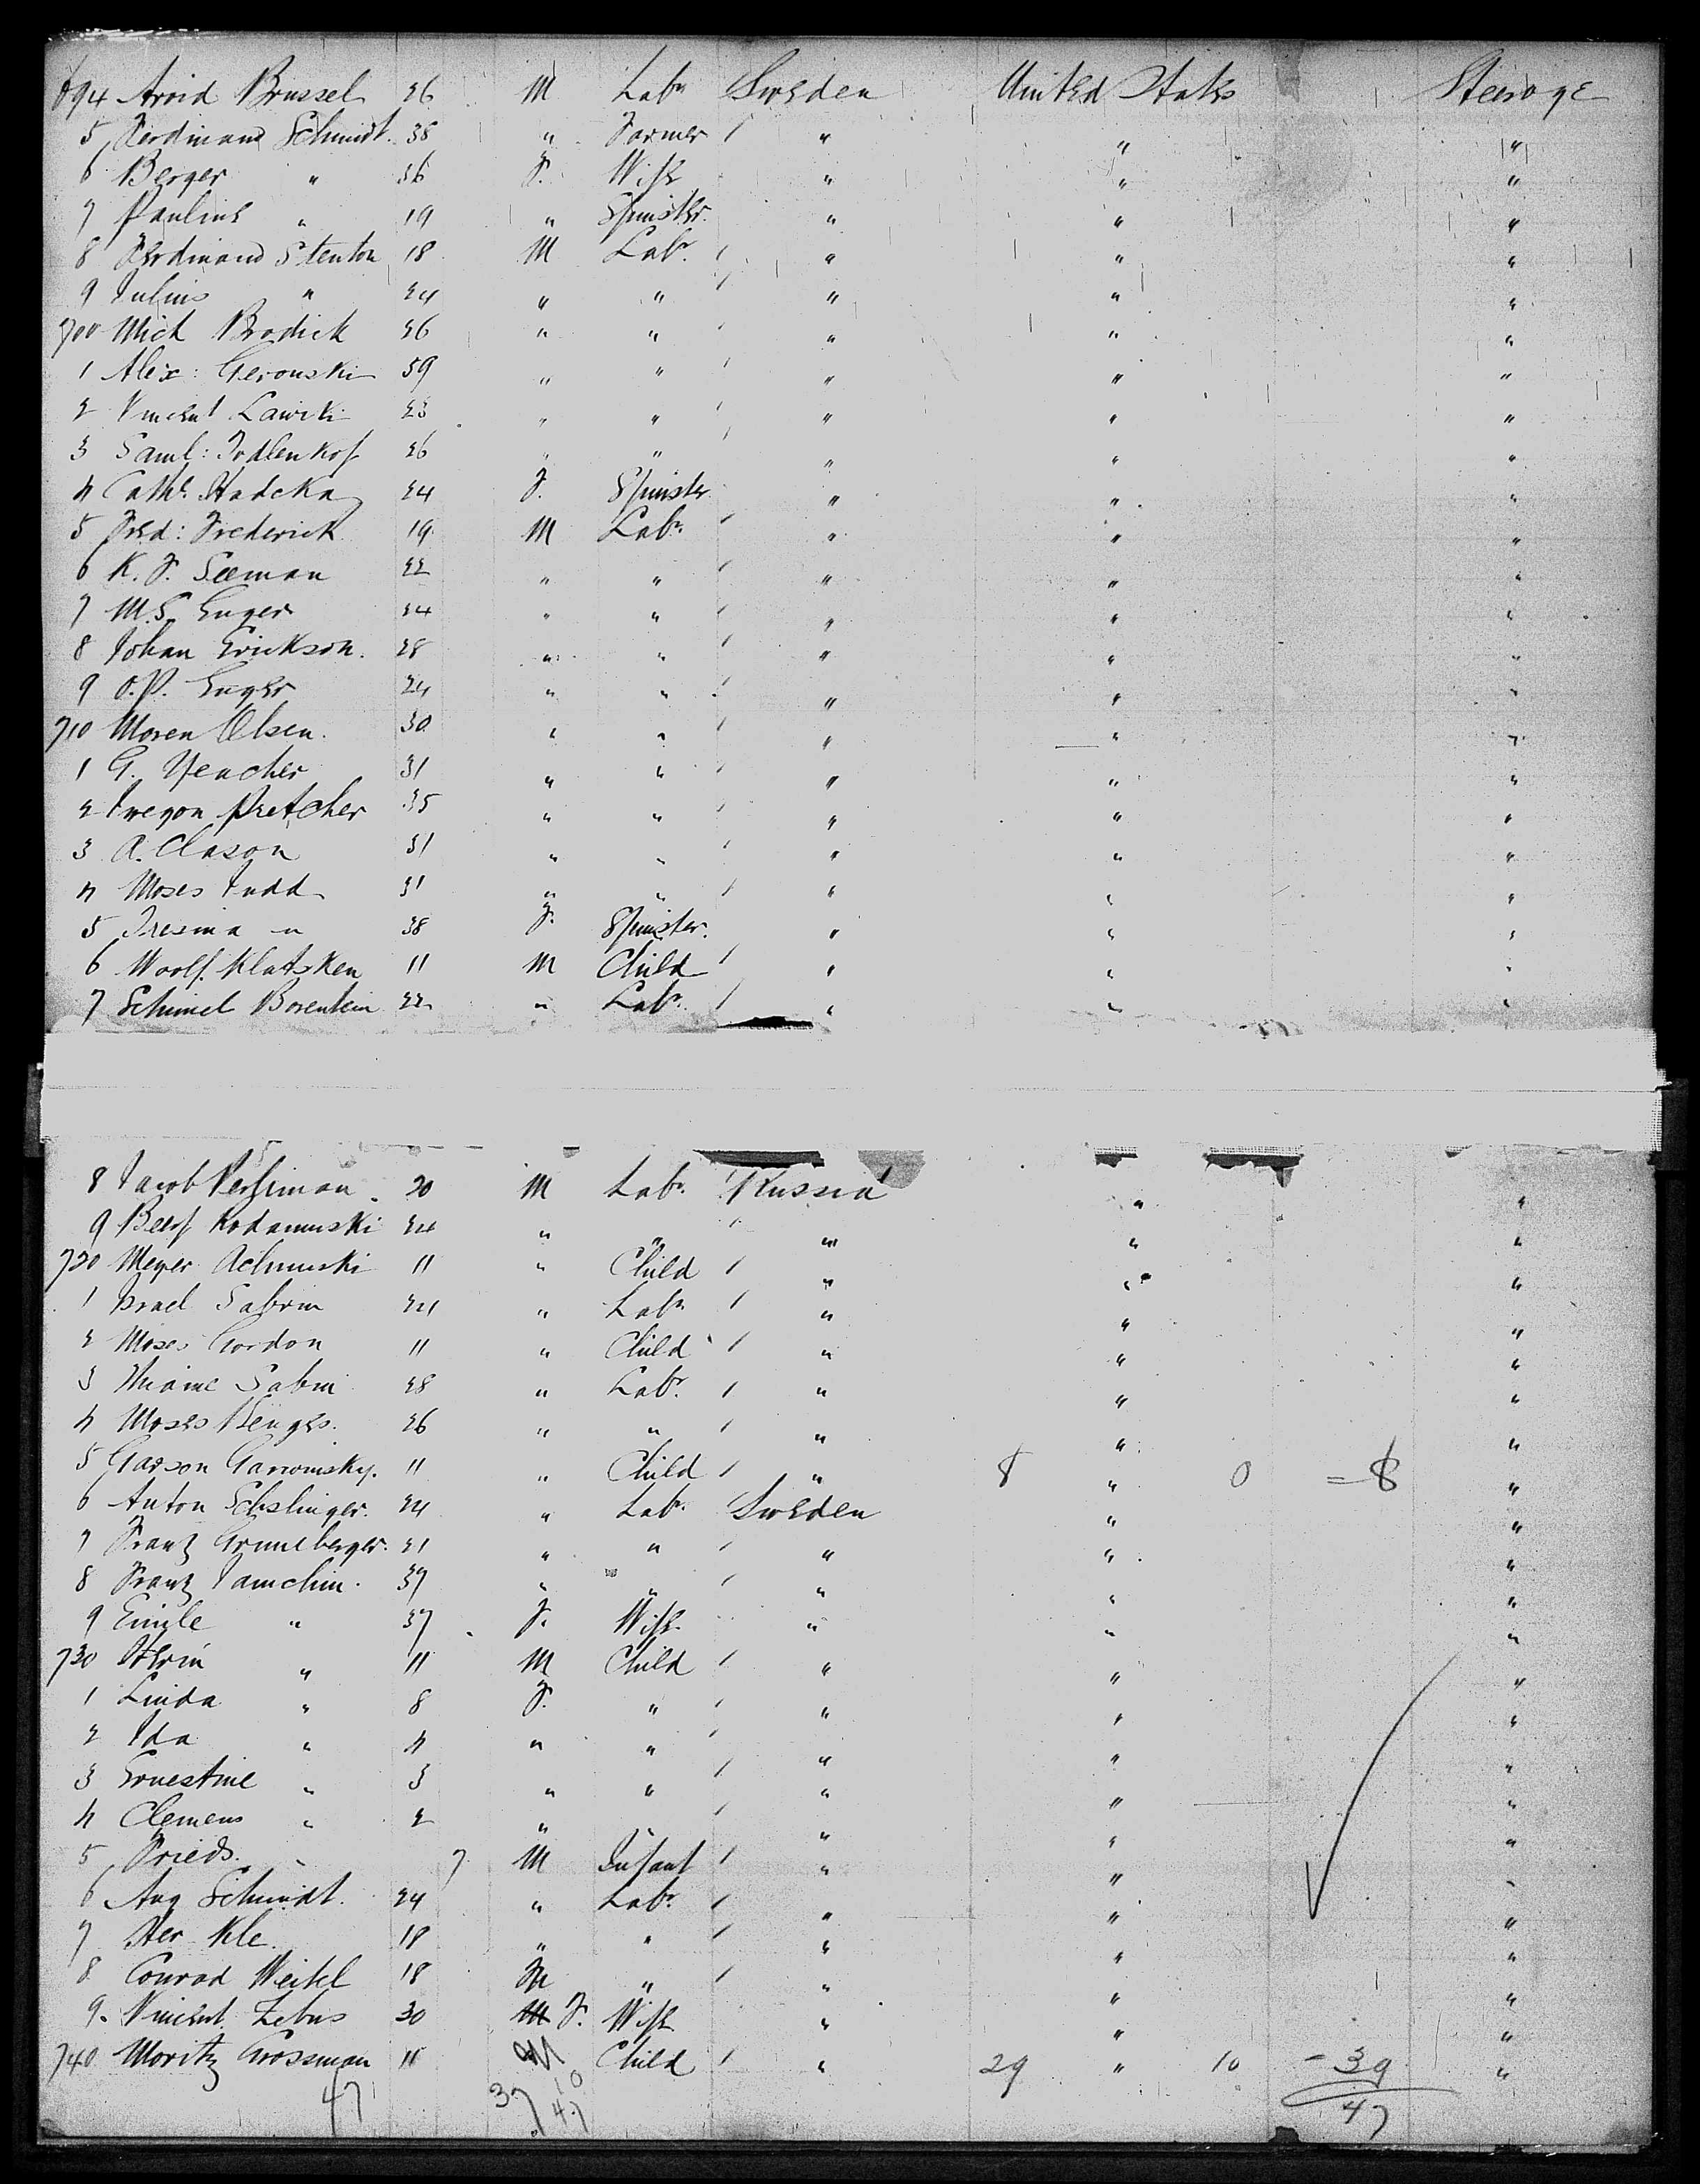 694 Arvid Brussel 26 M Labr Sweden United States Steerage
5 Ferdinand Schmidt 38 " Farmer " " "
6 Berger " 36 F. Wife " " "
7 Pauline " 19 " Spinster. " " "
8 Ferdinand Stenton 18 M Labr. " " "
9 Julius " 24 " " " " "
700 Mich Brodick 26 " " " " "
1 Alex: Gerouski 59 " " " " "
2 Vincent Lawcki 23 " " " " "
3 Saml: Todlenkof 26 " " " " "
4 Cathe Hadcka 24 F. Spinster " " "
5 Fred: Frederick 19 M Labr " " "
6 K. F. Seeman 22 " " " " "
7 M. S. Enger 24 " " " " "
8 Johan Erickson. 28 " " " " "
9 O. P. Enger 24 " " " " "
710 Moren Olsen. 30 " " " " "
1 G. Yeacher 31 " " " " "
2 Pretcher 35 " " " " "
3 A. Clason 31 " " " " "
4 Moses Judd 31 " " " " "
5 Tresina " 38 F. Spinster. " " "
6 Woolf Klatsken 11 M Child " " "
7 Schimel Borentein 22 " Labr. " " "
8 Jacob Perhiman 20 M Labr. Russia " "
9 Beerf Rodamuski 24 " " " " "
720 Meyer Achmuski 11 " Child " " "
1 Israel Sabrin 24 " Labr " " "
2 Moses Gordon 11 " Child " " "
3 Sabin 28 " Labr. " " "
4 Moses Benges. 26 " " " " "
5 Garson Garsonisky. 11 " Child " 8 " 0 = 8 "
6 Anton Echslinger. 24 " Labr. Sweden " "
7 Franz Gruneberger. 21 " " " " "
8 Franz Jamchin. 37 " " " " "
9 Emile " 37 F. Wife " " "
730 " 11 M Child " " "
1 Linda " 8 F. " " " "
2 Ida " 4 " " " " "
3 Ernestine " 3 " " " " "
4 Clemens " 2 " " " " "
5 Frieds. " 7 M Infant " " "
6 Aug Schmidt. 24 " Labr. " " "
7 Her Kle 18 " " " " "
8 Conrad Weikel 18 M " " " "
9. Vincent Zebus 30 F. Wife " " "
740 Moritz Grossman 11 M Child " 29 " 10 - 39 "
47 37 10 47 47